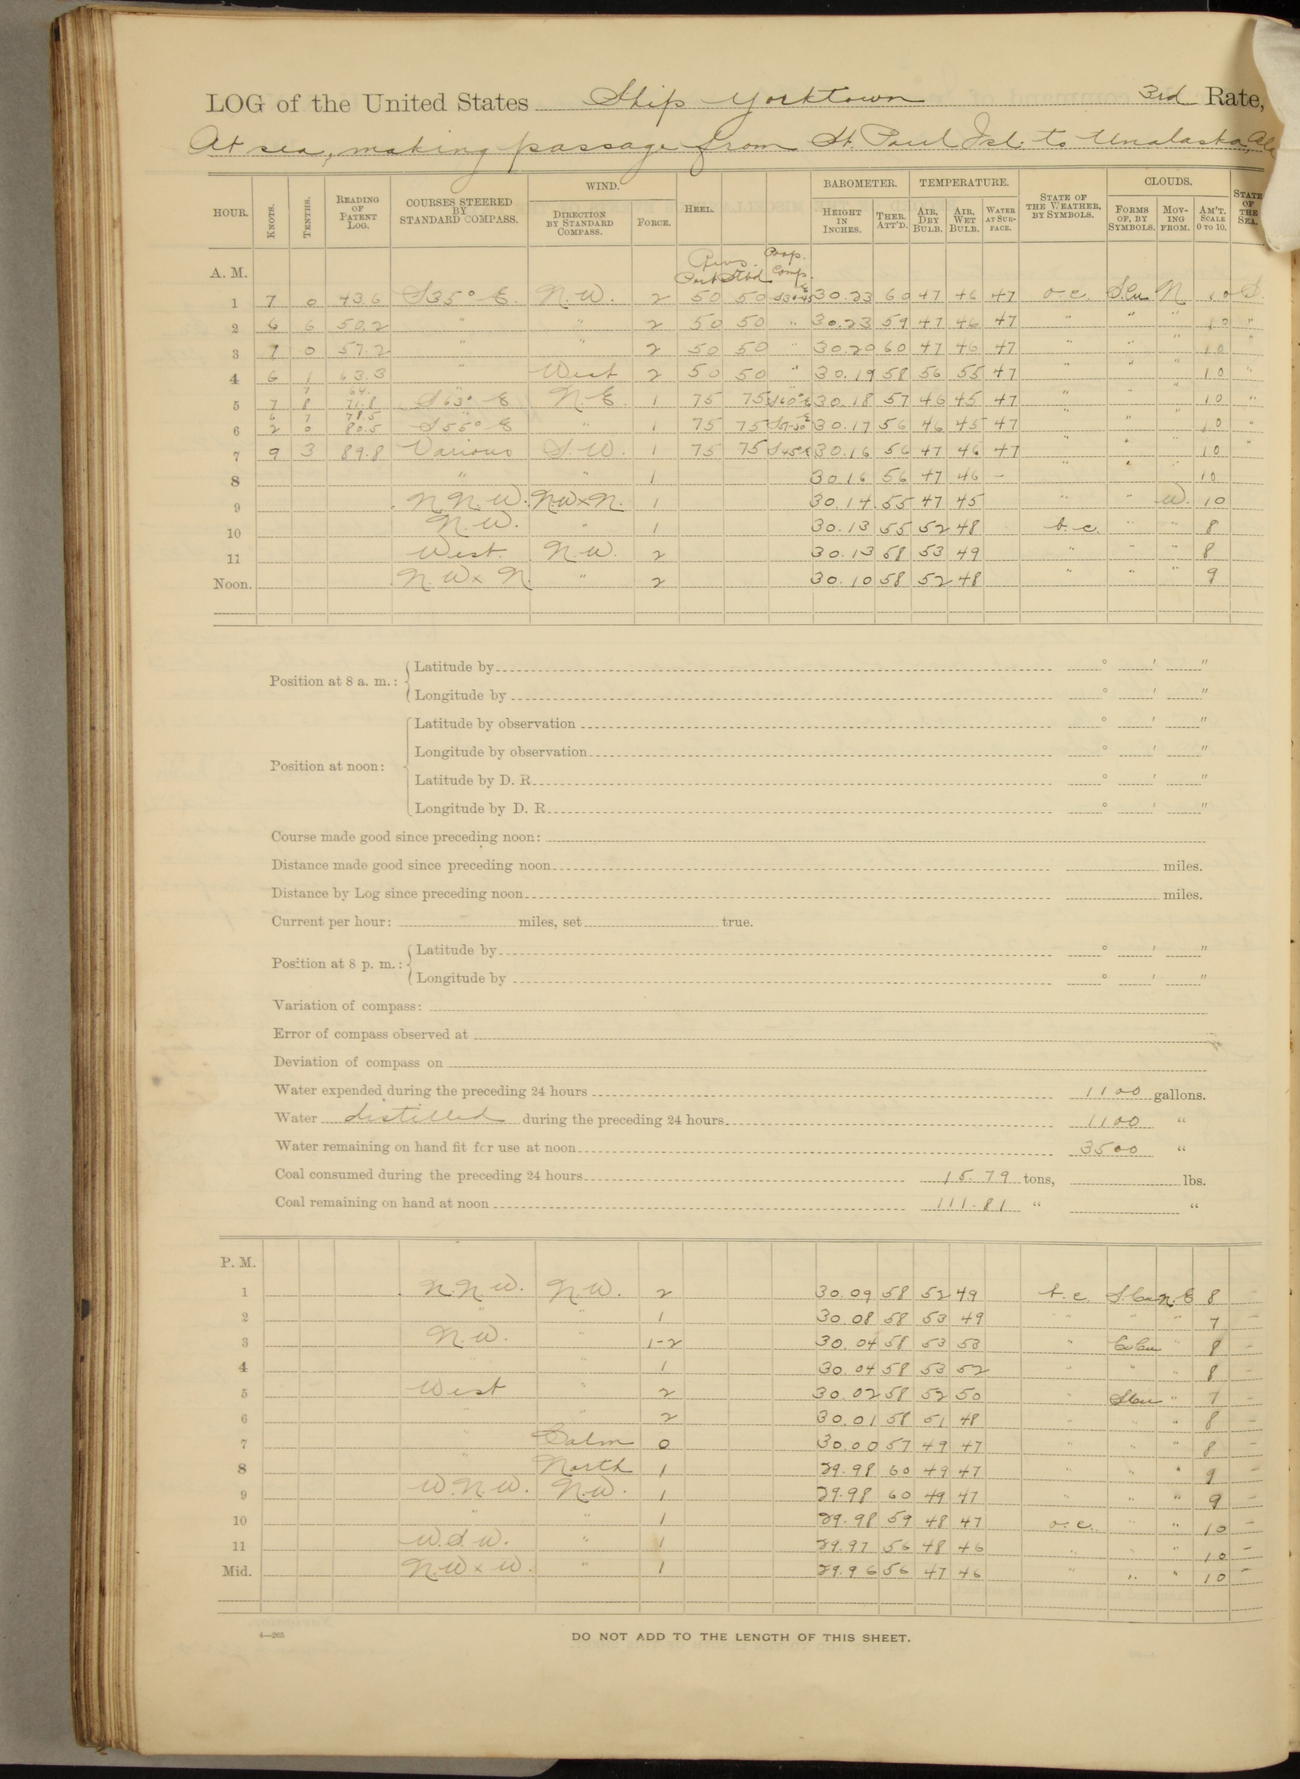 LOG of the United States Ship Yorktown 3rd Rate,
At sea, making passage from St. Paul Isl. to Unalaska, Ala
HOUR. KNOTS. TENTHS. READING OF PATENT LOG. COURSES STEERED BY STANDARD COMPASS. WIND. DIRECTION BY STANDARD COMPASS. FORCE. HEEL. BAROMETER. HEIGHT IN INCHES. THER. ATT'D. TEMPERATURE. AIR, DRY BULB. AIR, WET BULB. WATER AT SURFACE. STATE OF THE WEATHER, BY SYMBOLS. CLOUDS. FORMS OF, BY SYMBOLS. MOVING FROM. AM'T. SCALE 0 TO 10. STATE OF THE SEA.
A. M. Revs. Port Stbd Comp.
1 7 0 43.6 S35° E. N.W. 2 50 50 30.23 60 47 46 47 o.c. S.Cu N 10 S.
2 6 6 50.2 " " 2 50 50 " 30.23 59 47 46 47 " " " 10 "
3 7 0 57.2 " " 2 50 50 30.20 60 47 46 47 " " " 10 "
4 6 1 63.3 " West 2 50 50 " 30.19 58 56 55 47 " " " 10 "
5 7 8 71.8 S63° E N.E. 1 75 75 S60°E 30.18 57 46 45 47 " " " 10 "
6 7 78.5
6 2 0 80.5 S55° E " 1 75 75 30.17 56 46 45 47 " " " 10 "
7 9 3 89.8 Various S.W. 1 75 75 30.16 56 47 46 47 " " " 10
8 " 1 30.16 56 47 46 - " " 10
9 N.N.W. NWxN. 1 30.14 55 47 45 " " W. 10
10 N.W. " 1 30.13 55 52 48 b.c. " " 8
11 West. N.W. 2 30.13 58 53 49 " " " 8
Noon. N.WxN " 2 30.10 58 52 48 " " " 9
Position at 8 a. m.: Latitude by ° ′ ″
Longitude by ° ′ ″
Position at noon: Latitude by observation ° ′ ″
Longitude by observation ° ′ ″
Latitude by D. R. ° ′ ″
Longitude by D. R. ° ′ ″
Course made good since preceding noon:
Distance made good since preceding noon miles.
Distance by Log since preceding noon miles.
Current per hour: miles, set true.
Position at 8 p. m.: Latitude by ° ′ ″
Longitude by ° ′ ″
Variation of compass:
Error of compass observed at
Deviation of compass on
Water expended during the preceding 24 hours 1100 gallons.
Water distilled during the preceding 24 hours 1100 "
Water remaining on hand fit for use at noon 3500 "
Coal consumed during the preceding 24 hours 15.79 tons, lbs.
Coal remaining on hand at noon 111.81 " "
P. M.
1 N.N.W. N.W. 2 30.09 58 52 49 b.c. S.Cu N.E 8 -
2 " " 1 30.08 58 53 49 " " " 7 -
3 N.W. " 1-2 30.04 58 53 53 " " 8 -
4 " " 1 30.04 58 53 52 " " " 8 -
5 West " 2 30.02 58 52 50 " SCu " 7 -
6 " " 2 30.01 58 51 48 " " " 8 -
7 " Calm 0 30.00 57 49 47 " " " 8 -
8 North 1 29.98 60 49 47 " " " 9 -
9 W.N.W. N.W. 1 29.98 60 49 47 " " " 9 -
10 " " 1 29.98 59 48 47 o.c. " " 10 -
11 " 1 29.97 56 48 46 " " " 10 -
Mid. N.WxW. " 1 29.96 56 47 46 " " " 10 -
4—265
DO NOT ADD TO THE LENGTH OF THIS SHEET.